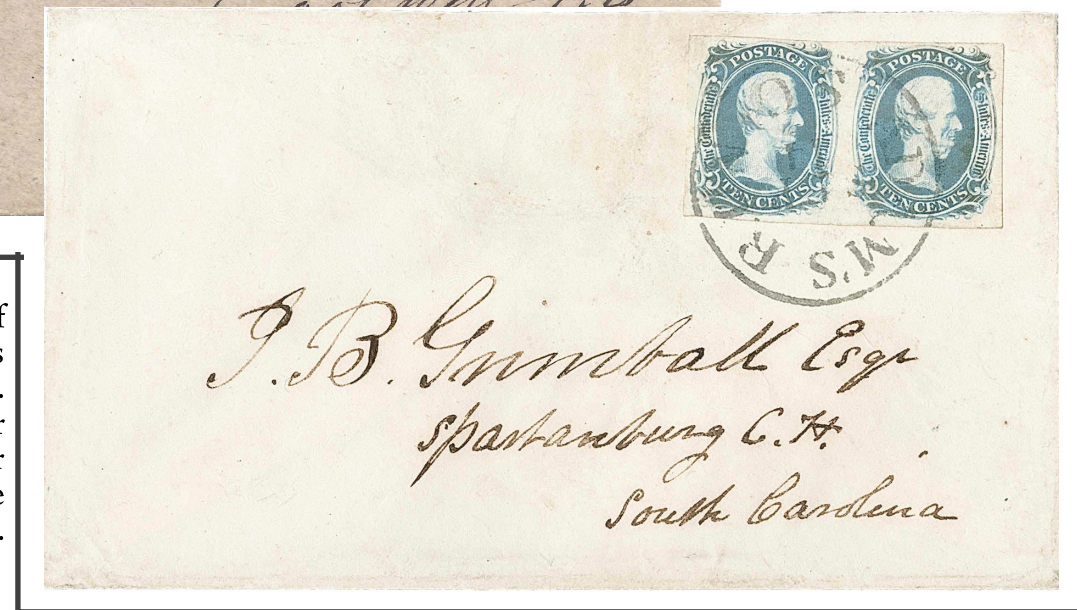 POSTAGE
The Confederate States of America
TEN CENTS
POSTAGE
The Confederate States of America
TEN CENTS
M'S R
J. B. Grimball Esqr
Spartanburg C. H.
South Carolina
f
s
.
r
r
e
.